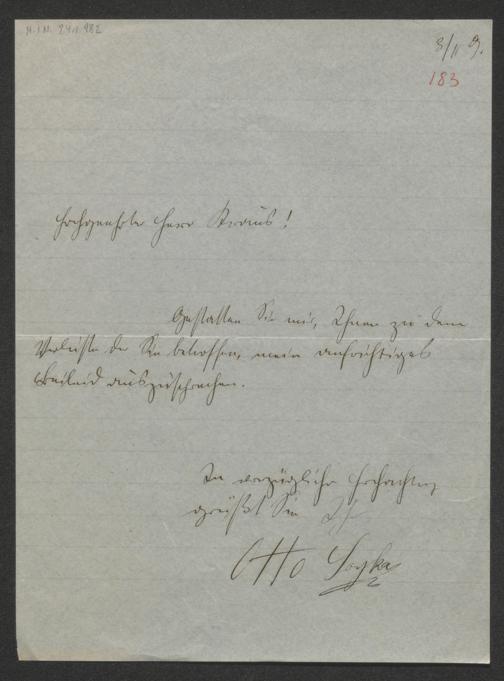 3/II 9.
183
Hochgeehrter Herr Kraus!
Gestatten Sie mir, Ihnen zu dem
Verluste der Sie betroffen, mein aufrichtiges
Beileid auszusprechen.
In vorzüglicher Hochachtung
grüßt Sie Ihr
Otto Soyka